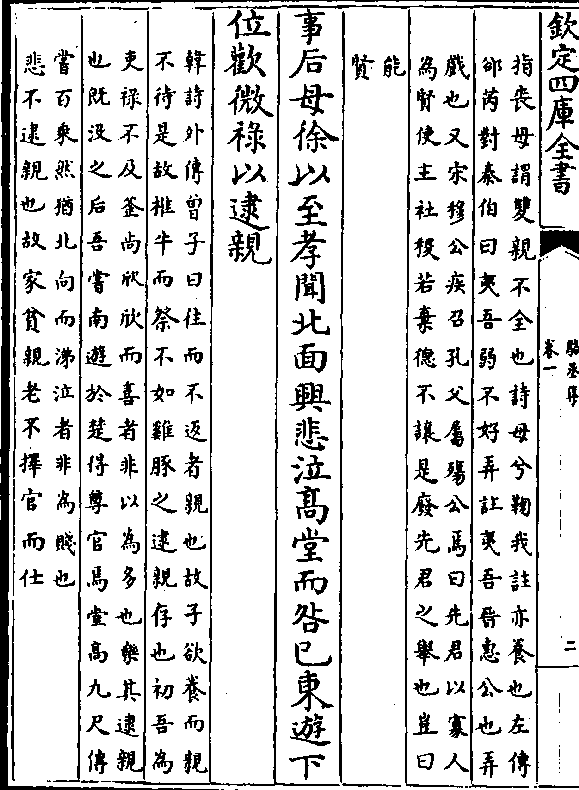 欽定四庫全書
駱丞集
卷一
二
指喪母謂雙親不全也詩母兮鞠我註亦養也左傳
郤芮對秦伯曰夷吾弱不好弄註夷吾晉惠公也弄
戲也又宋穆公疾召孔父屬殤公焉曰先君以寡人
為賢使主社稷若棄德不讓是廢先君之舉也豈曰
能
賢
事后母徐以至孝聞北面興悲泣高堂而咎已東遊下
位歡微祿以逮親
韓詩外傳曾子曰往而不返者親也故子欲養而親
不待是故椎牛而祭不如雞豚之逮親存也初吾為
吏祿不及釜尚欣欣而喜者非以為多也樂其逮親
也既没之后吾嘗南遊於楚得尊官焉堂高九尺傳
當百乘然猶北向而涕泣者非為賤也
悲不逮親也故家貧親老不擇官而仕